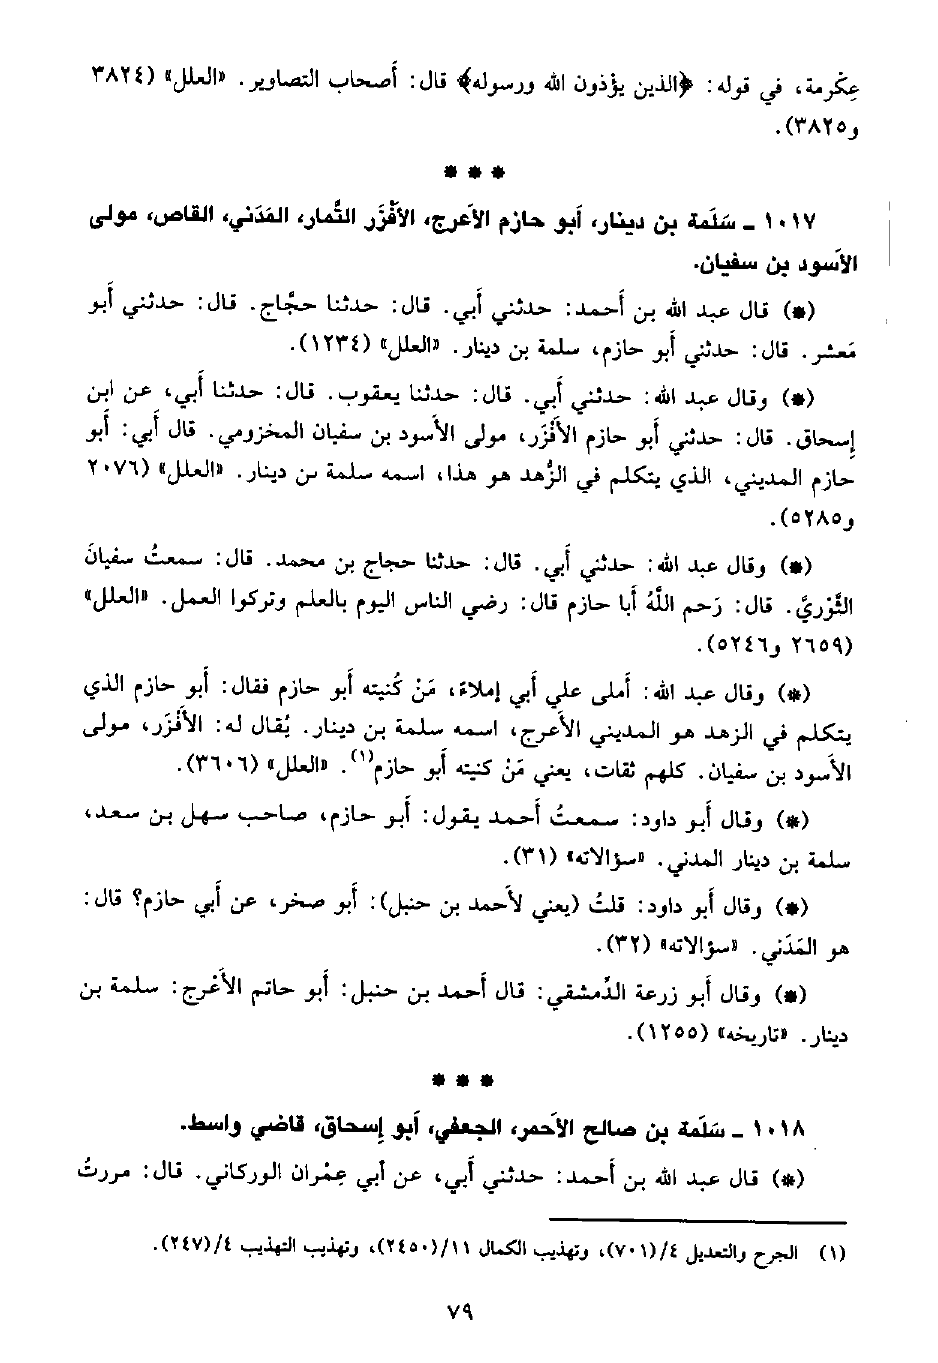 عِكْرمة، في قوله: ﴿الذين يؤذون الله ورسوله﴾ قال: أصحاب التصاوير. «العلل» (٣٨٢٤
و٣٨٢٥).
* * *
١٠١٧ ـ سَلَمة بن دينار، أبو حازم الأعرج، الأَفْزَر التَّمار، المَدَني، القاص، مولى
الأسود بن سفيان.
(*) قال عبد الله بن أحمد: حدثني أبي. قال: حدثنا حجَّاج. قال: حدثني أبو
مَعشر. قال: حدثني أبو حازم، سلمة بن دينار. «العلل» (١٢٣٤).
(*) وقال عبد الله: حدثني أبي. قال: حدثنا يعقوب. قال: حدثنا أبي، عن ابن
إسحاق. قال: حدثني أبو حازم الأَفْزَر، مولى الأسود بن سفيان المخزومي. قال أبي: أبو
حازم المديني، الذي يتكلم في الزُّهد هو هذا، اسمه سلمة بن دينار. «العلل» (٢٠٧٦
و٥٢٨٥).
(*) وقال عبد الله: حدثني أبي. قال: حدثنا حجاج بن محمد. قال: سمعتُ سفيانَ
الثَّوْريَّ. قال: رَحم اللَّهُ أبا حازم قال: رضي الناس اليوم بالعلم وتركوا العمل. «العلل»
(٢٦٥٩ و٥٢٤٦).
(*) وقال عبد الله: أملى علي أبي إملاءً، مَنْ كُنيته أبو حازم فقال: أبو حازم الذي
يتكلم في الزهد هو المديني الأعرج، اسمه سلمة بن دينار. يُقال له: الأَفْزَر، مولى
الأسود بن سفيان. كلهم ثقات، يعني مَنْ كنيته أبو حازم(١). «العلل» (٣٦٠٦).
(*) وقال أبو داود: سمعتُ أحمد يقول: أبو حازم، صاحب سهل بن سعد،
سلمة بن دينار المدني. «سؤالاته» (٣١).
(*) وقال أبو داود: قلتُ (يعني لأحمد بن حنبل): أبو صخر، عن أبي حازم؟ قال:
هو المَدَني. «سؤالاته» (٣٢).
(*) وقال أبو زرعة الدِّمشقي: قال أحمد بن حنبل: أبو حاتم الأَعْرج: سلمة بن
دينار. «تاريخه» (١٢٥٥).
* * *
١٠١٨ ـ سَلَمة بن صالح الأحمر، الجعفي، أبو إسحاق، قاضي واسط.
(*) قال عبد الله بن أحمد: حدثني أبي، عن أبي عِمْران الوركاني. قال: مررتُ
(١) الجرح والتعديل ٤/(٧٠١)، وتهذيب الكمال ١١/(٢٤٥٠)، وتهذيب التهذيب ٤/(٢٤٧).
٧٩